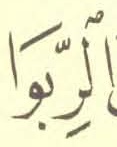 ٱلرِّبَوٰا